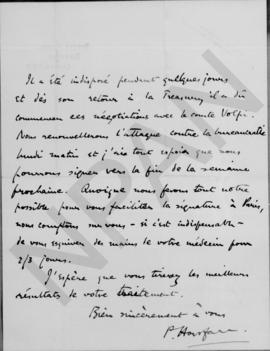 Il a été indisposé pendant quelques jours
et dès son retour à la Treasury il a dû
commencer ces négotiations avec le comte Volpi.
Nous renouvellerons l'attaque contre la bureaucratie
lundi matin et j'ai tout espoir que nous
pourrons signer vers la fin de la semaine
prochaine. Quoique nous ferons tout notre
possible pour vous faciliter la signature à Paris,
nous comptons sur vous - si c'est indispensable -
de vous esquiver des mains de votre médecin pour
2/3 jours.
J'espère que vous tirerez les meilleurs
résultats de votre traitement.
Bien sincèrement à vous
P.